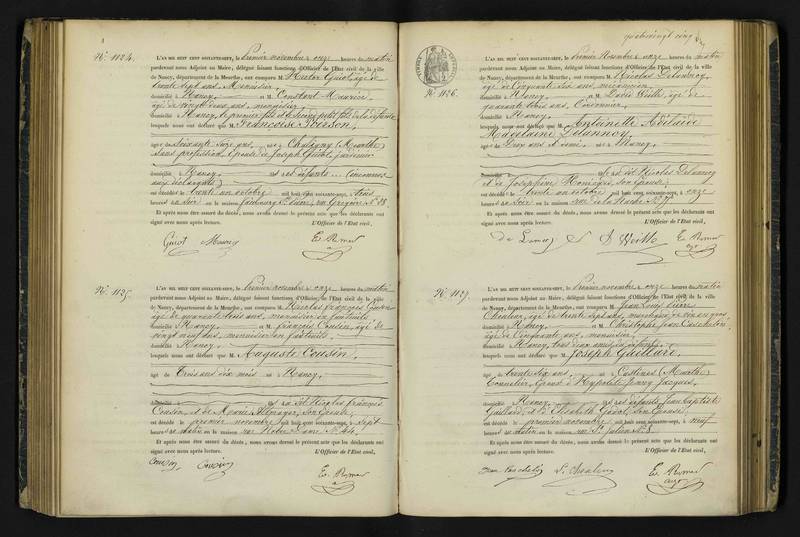 Nº 1124.
L'AN MIL HUIT CENT SOIXANTE-SEPT, le Premier novembre à onze heures du matin
pardevant nous Adjoint au Maire, délégué faisant fonctions d'Officier de l'Etat civil de la ville
de Nancy, département de la Meurthe, ont comparu M. Victor Guiot, âgé de
trente sept ans, Menuisier,
domicilié à Nancy, et M. Constant Maurice,
âgé de vingt deux ans, menuisier,
domicilié à Nancy, le premier fils et le second petit fils de la défunte
lesquels nous ont déclaré que M. Françoise Poirson,
âgée de soixante seize ans, née à Chaligny (Meurthe)
sans profession, Epouse de Joseph Guiot, jardinier
domiciliée à Nancy,
aux déclarants)
est décédée le trente un octobre mil huit cent soixante-sept, à trois
heures du soir en la maison faubourg St Pierre, rue Nº 88
Et après nous être assuré du décès, nous avons dressé le présent acte que les déclarants ont
signé avec nous après lecture. L'Officier de l'Etat civil,
Guiot Maurice
Nº 1125.
L'AN MIL HUIT CENT SOIXANTE-SEPT, le Premier novembre à onze heures du matin
pardevant nous Adjoint au Maire, délégué faisant fonctions d'Officier de l'Etat civil de la ville
de Nancy, département de la Meurthe, ont comparu M. Nicolas François Cousin
âgé de quarante trois ans, menuisier en fauteuils,
domicilié à Nancy, et M. François Cousin, âgé de
vingt neuf ans, menuisier en fauteuils,
domicilié à Nancy,
lesquels nous ont déclaré que M. Auguste Cousin,
âgé de Trois ans dix mois né à Nancy,
domicilié à
fils de Nicolas François
Cousin, et de Marie son Epouse,
est décédé le premier novembre mil huit cent soixante-sept, à sept
heures du matin en la maison rue Notre Dame Nº 44.
Et après nous être assuré du décès, nous avons dressé le présent acte que les déclarants ont
signé avec nous après lecture. L'Officier de l'Etat civil,
Cousin Cousin
quatrevingt cinq
Nº 1126.
L'AN MIL HUIT CENT SOIXANTE-SEPT, le Premier Novembre à onze heures du matin
pardevant nous Adjoint au Maire, délégué faisant fonctions d'Officier de l'Etat civil de la ville
de Nancy, département de la Meurthe, ont comparu M. Nicolas Delannoy,
âgé de Cinquante six ans, mécanicien,
domicilié à Nancy, et M. David Weille, âgé de
quarante trois ans,
domicilié à Nancy,
lesquels nous ont déclaré que M. Antoinette Adélaïde
Madelaine Delannoy,
âgée de Deux ans et demi née à Nancy,
domiciliée à fille de Nicolas Delannoy
et de Joséphine son Epouse,
est décédée le trente un octobre mil huit cent soixante-sept, à onze
heures du soir en la maison rue de la Hache Nº 77
Et après nous être assuré du décès, nous avons dressé le présent acte que les déclarants ont
signé avec nous après lecture. L'Officier de l'Etat civil,
De Lannoy D Weille
Nº 1127.
L'AN MIL HUIT CENT SOIXANTE-SEPT, le Premier novembre à onze heures du matin
pardevant nous Adjoint au Maire, délégué faisant fonctions d'Officier de l'Etat civil de la ville
de Nancy, département de la Meurthe, ont comparu M. Jean Louis Pierre
Chevalier, âgé de trente sept ans, marchand de vin en gros,
domicilié à Nancy, et M. Christophe Jean
âgé de Cinquante ans, menuisier
domicilié à Nancy, tous deux amis du défunt,
lesquels nous ont déclaré que M. Joseph Gaillard,
âgé de trente six ans, né à Custines (Meurthe)
Tonnelier, Epoux d'Hypolite Fanny Jacques,
domicilié à Nancy, fils des défunts Jean Baptiste
Gaillard, et d'Elisabeth son Epouse,
est décédé le premier novembre mil huit cent soixante-sept, à neuf
heures du matin en la maison rue St Julien Nº 8.
Et après nous être assuré du décès, nous avons dressé le présent acte que les déclarants ont
signé avec nous après lecture. L'Officier de l'Etat civil,